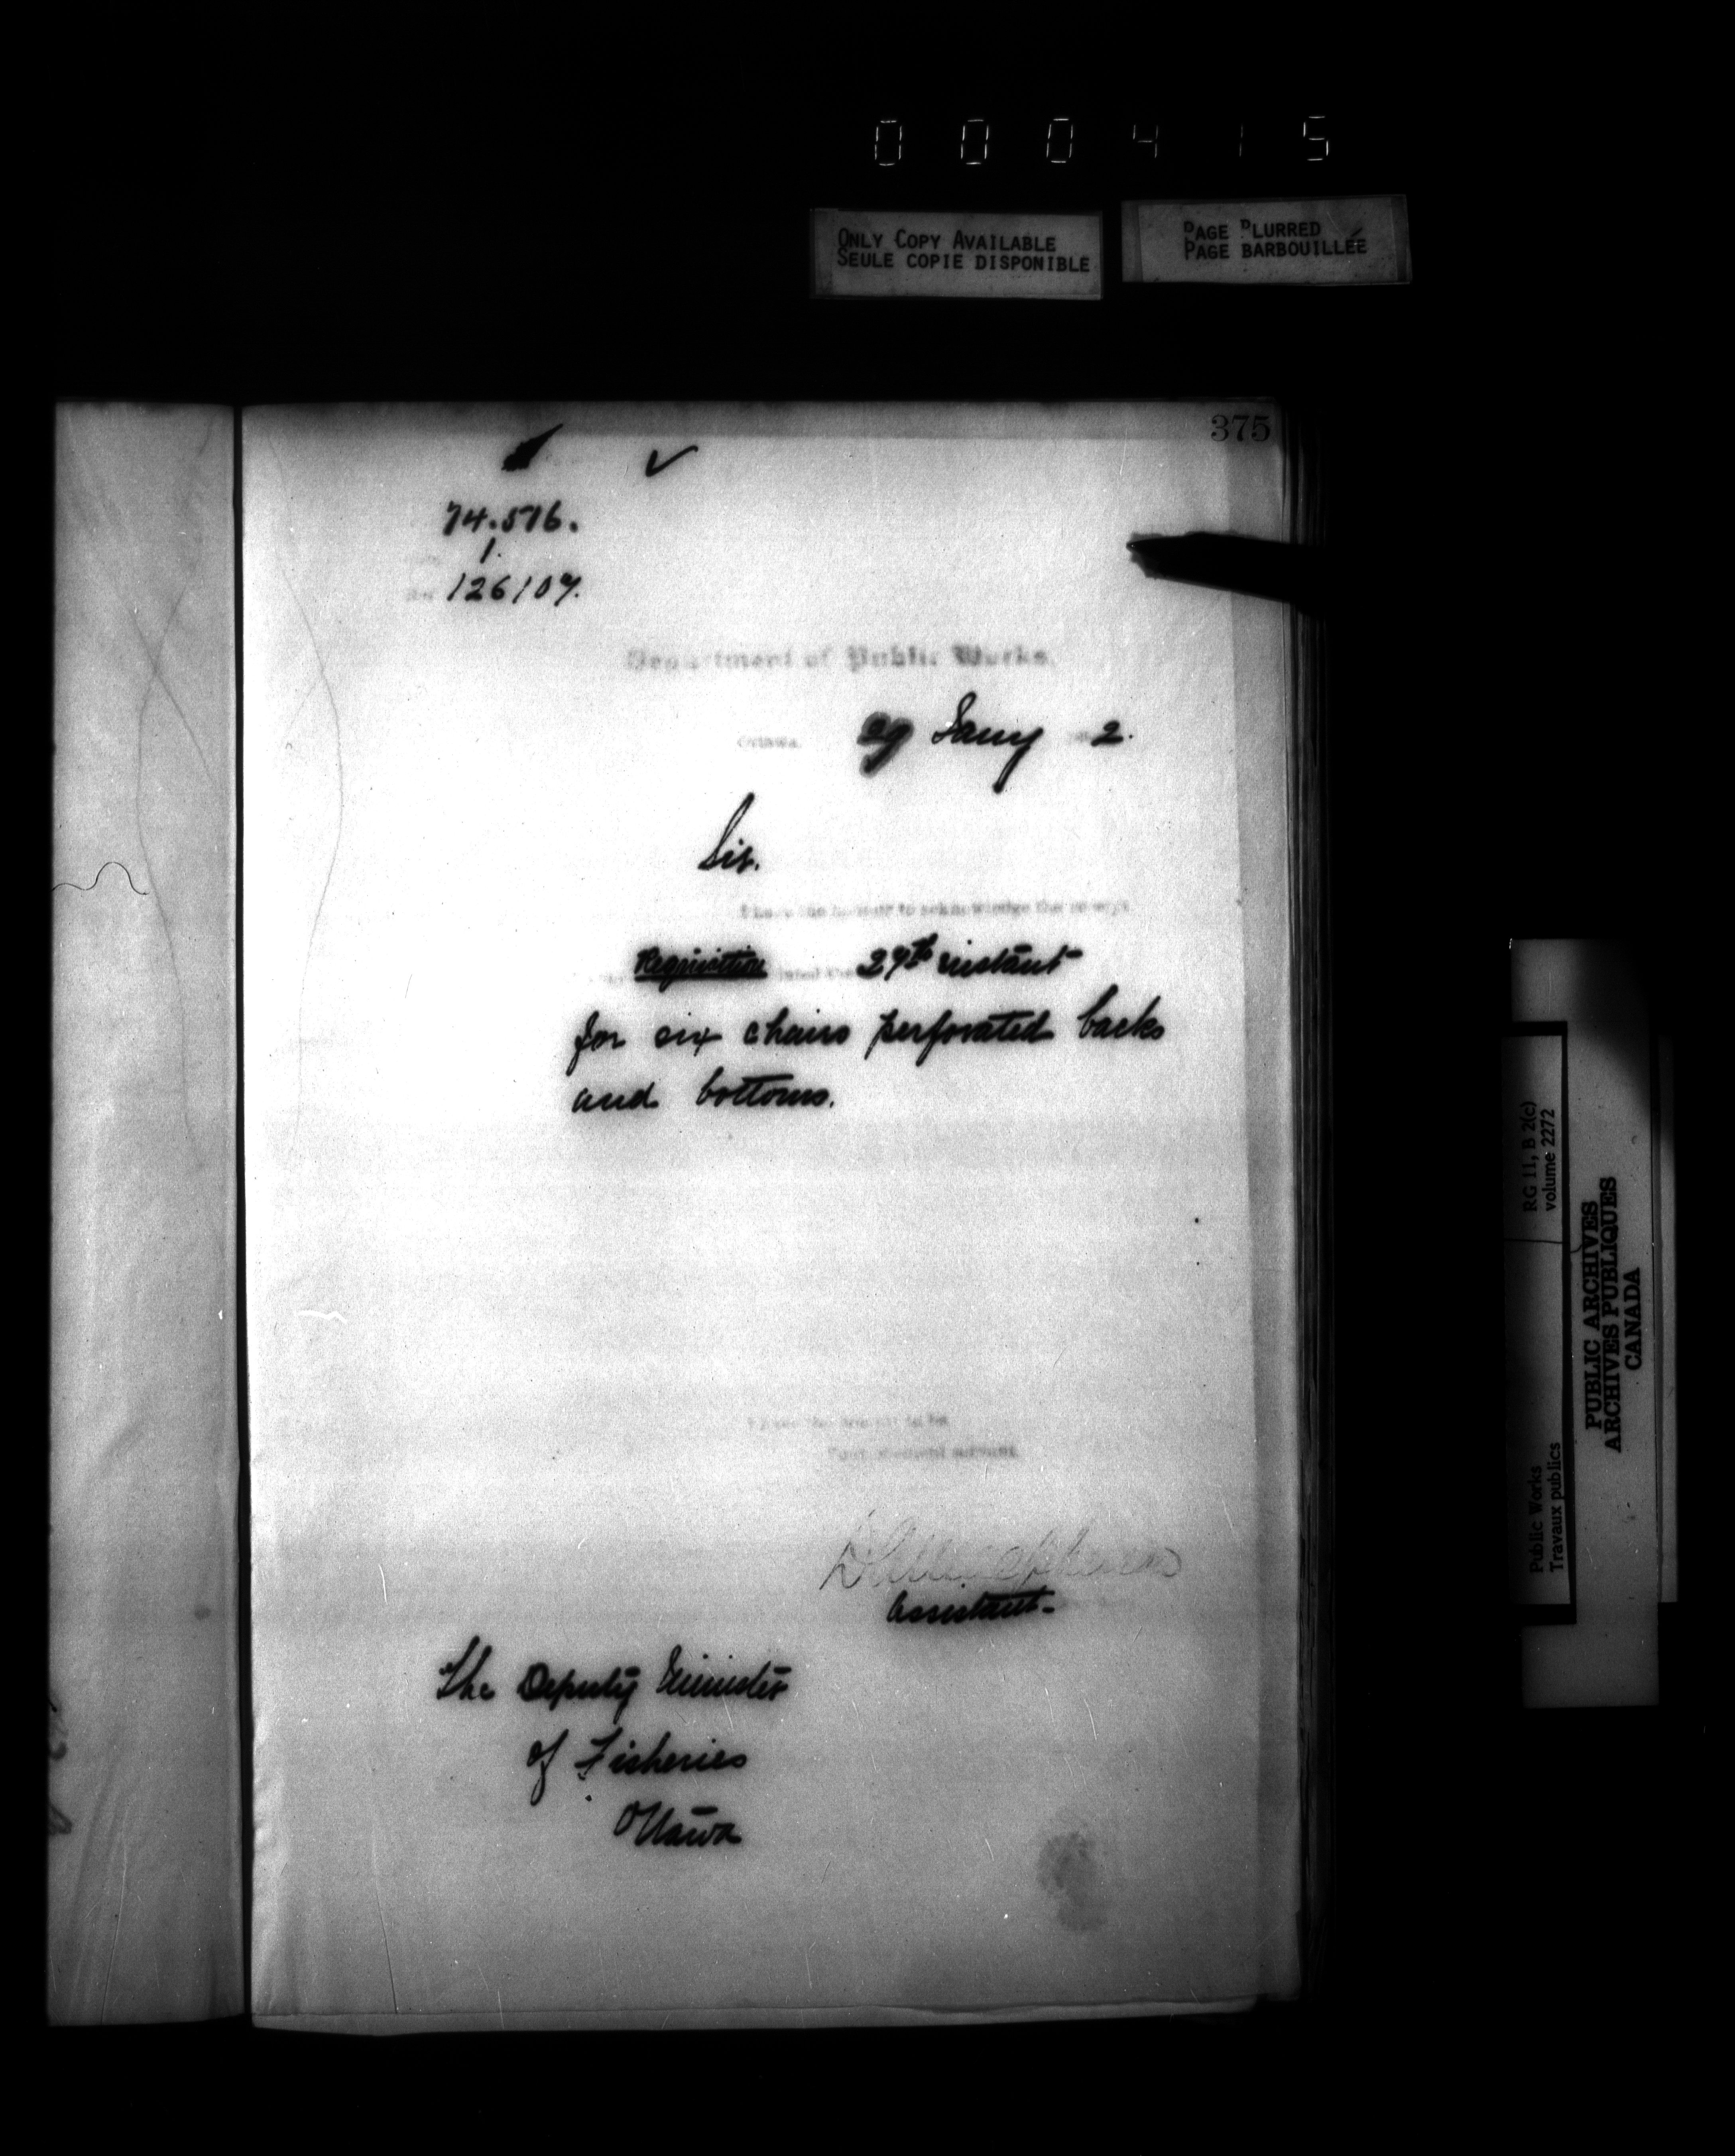 000415
ONLY COPY AVAILABLE
SEULE COPIE DISPONIBLE
PAGE BLURRED
PAGE BARBOUILLÉE
375
74.576.
1.
126107.
Department of Public Works.
Ottawa, 29 Jany 2.
Sir.
I have the honour to acknowledge the receipt
Requisition dated the 27th instant
for six chairs perforated backs
and bottoms.
I have the honour to be
Your obedient servant
Assistant
The Deputy Minister
of Fisheries
Ottawa
RG 11, B 2(c)
volume 2272
Public Works
Travaux publics
PUBLIC ARCHIVES
ARCHIVES PUBLIQUES
CANADA